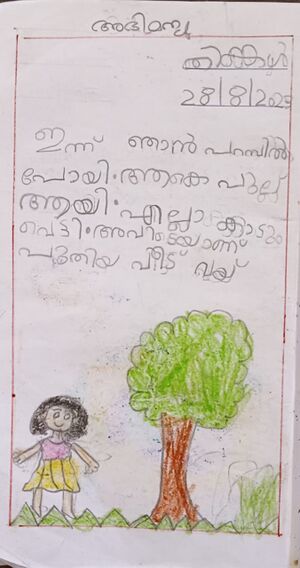 അഭിമന്യു
തിങ്കൾ
28/8/2023
ഇന്ന് ഞാൻ പറമ്പിൽ
പോയി. ആകെ പുല്ല്
ആയി. എല്ലാ കാടും
വെട്ടി. അവിടെയാണ്
പുതിയ വീട് വയ്